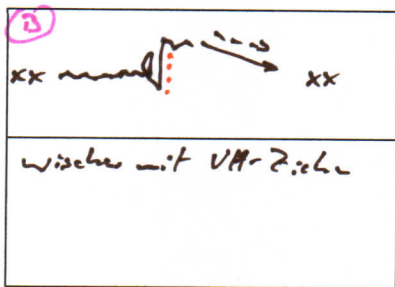 B
xx xx
wischer mit VH-Ziehen